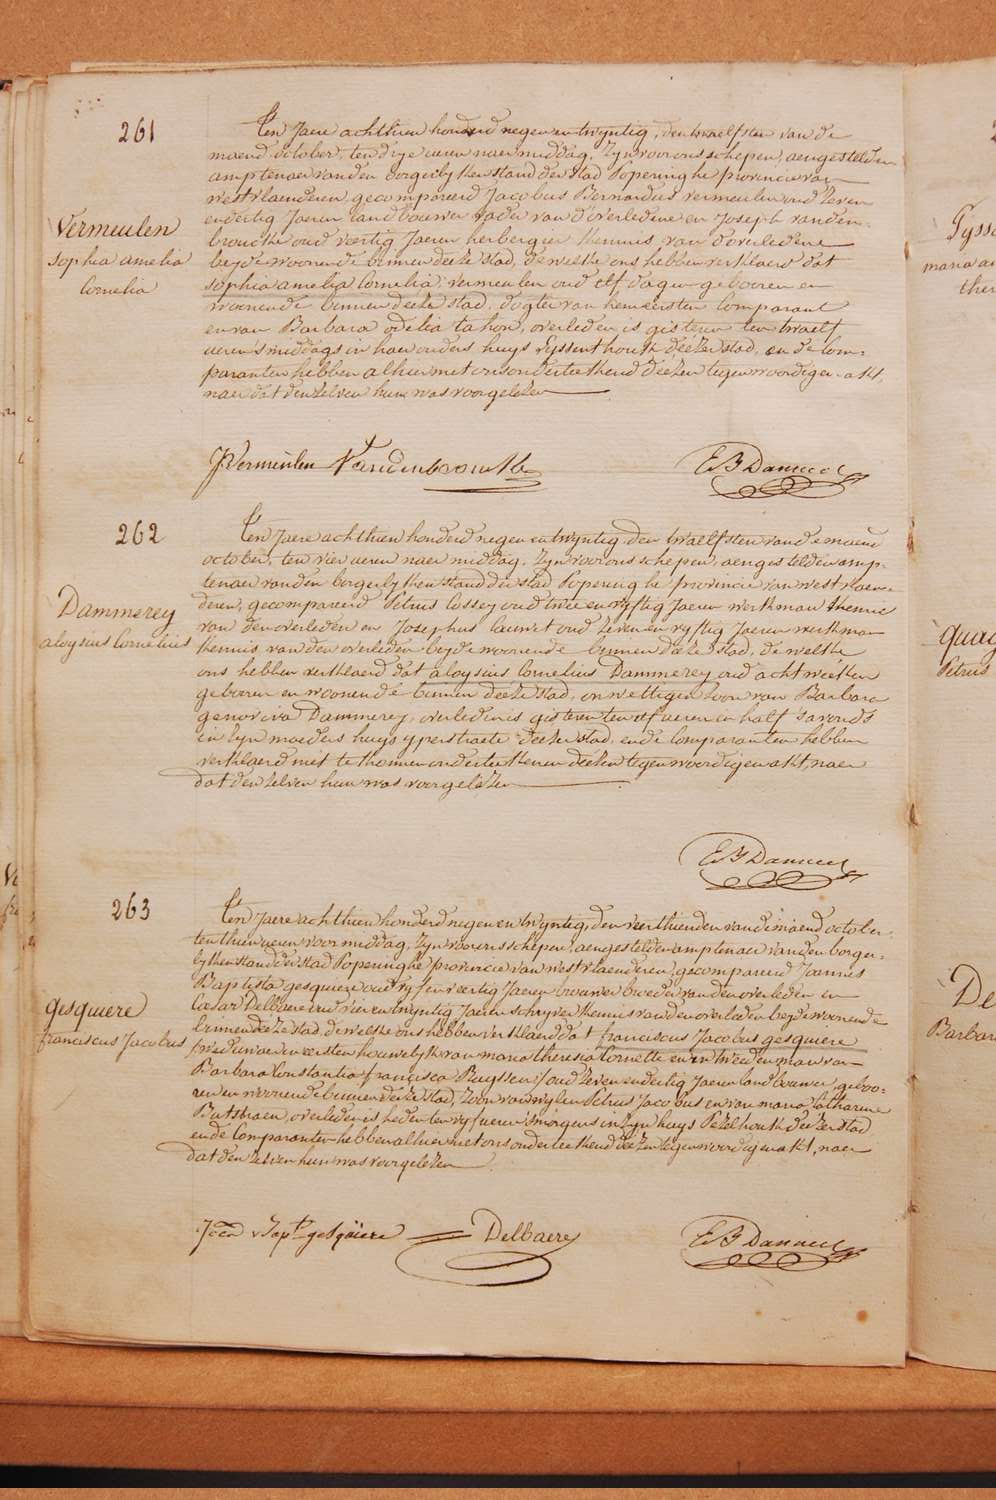 261
Ten Jaere achthien honderd negen en twyntig, den twaelfsten van de
maend october, ten drye ueren naer middag, Zyn voor ons schepen, aengestelden
amptenaer van den borgerlyken stand der stad Poperinghe provincie van
westvlaenderen, gecompareerd Jacobus Bernardus vermeulen oud zeven
en dertig Jaeren landbouwer vader van d'overledene en Joseph vanden-
broucke oud veertig Jaeren herbergier kennis van d'overledene
beyde woonende binnen deeze stad, de welke ons hebben verklaerd dat
sophia amelia Cornelia vermeulen oud elf dagen gebooren en
woonende binnen deeze stad, dogter van den eersten Comparant
en van Barbara odelia tahon, overleden is gisteren ten twaelf
ueren 's middags in haer ouders huys Eyssenthouk deezer stad, en de Com-
paranten hebben alhier met ons onderteekend deezen tegenwoordigen akt,
naer dat den zelven hun was voorgelezen
Vermeulen
sophia amelia
Cornelia
JVermeulen Vandenbroucke EB Dannoo
262
Ten Jaere achthien honderd negen en twyntig den twaelfsten van de maend
october, ten vier ueren naer middag, Zyn voor ons schepen, aengestelden amp-
tenaer van den borgerlyken stand der stad Poperinghe provincie van westvlaen-
deren, gecompareerd Petrus Cossey oud twee en vyftig Jaeren werkman kennis
van den overleden en Josephus lauwet oud zeven en vyftig Jaeren werkman
kennis van den overleden beyde woonende binnen deeze stad, de welke
ons hebben verklaerd dat aloysius Cornelius Dammerey oud acht weeken
gebooren en woonende binnen deeze stad, onwettigen zoon van Barbara
genoveva Dammerey, overleden is gisteren ten elf ueren en half 's avonds
in zyn moeders huys yperstraete deezer stad, en de Comparanten hebben
verklaerd niet te konnen onderteekenen deezen tegenwoordigen akt, naer
dat den zelven hun was voorgelezen
Dammerey
aloysius Cornelius
EB Dannoo
263
Ten Jaere achthien honderd negen en twyntig, den veerthienden van de maend october
ten thien ueren voor middag, Zyn voor ons schepen, aengestelden amptenaer van den borger-
lyken stand der stad Poperinghe provincie van westvlaenderen, gecompareerd Joannes
Baptista gesquiere oud vyf en veertig Jaeren brouwer broeder van den overleden en
Cesar Delbaere oud vier en twyntig Jaeren schryver kennis van den overleden beyde woonende
binnen deeze stad, de welke ons hebben verklaerd dat franciscus Jacobus gesquiere
weduwaer in eersten houwelyk van maria theresia Cornette en in tweeden man van
Barbara Constantia francisca Ruyssen, oud zeven en dertig Jaeren landbouwer, geboo-
ren en woonende binnen deeze stad, zoon van wylen Petrus Jacobus en van maria Catharina
Butstraen, overleden is heden ten vyf ueren 's morgens in zyn huys Pezelhouk deezer stad
en de Comparanten hebben alhier met ons onderteekend deezen tegenwoordigen akt, naer
dat den zelven hun was voorgelezen
gesquiere
franciscus Jacobus
Joan Bapt gesquiere Delbaere EB Dannoo